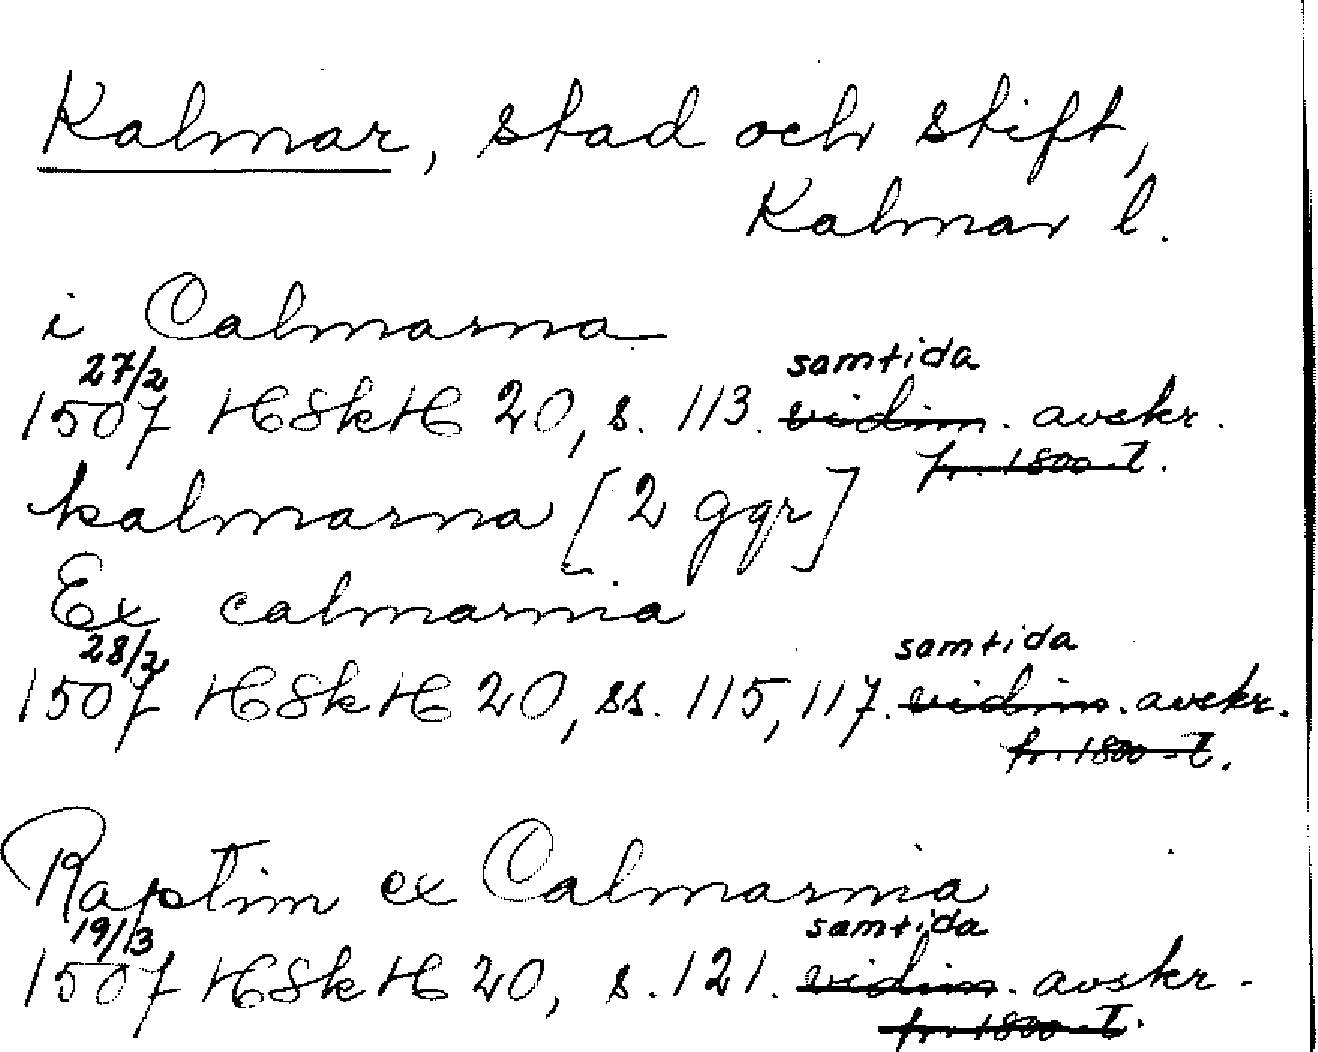 Kalmar, stad och stift,
Kalmar l.
i Calmarna
27/2 samtida
1507 HSkH 20, s. 113. vidim. avskr.
fr. 1800-t.
kalmarna [2 ggr]
Ex calmarnia
28/2 samtida
1507 HSkH 20, ss. 115, 117. vidim. avskr.
fr. 1800-t.
Raptim ex Calmarnia
19/3 samtida
1507 HSkH 20, s. 121. vidim. avskr.
fr. 1800-t.